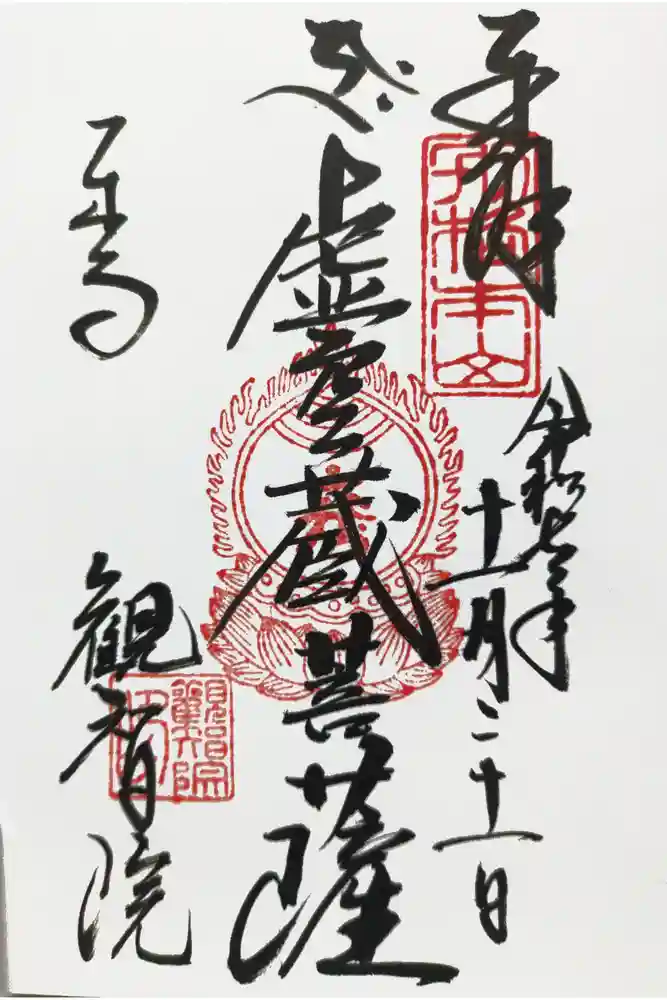 奉拝
令和七年
十一月二十一日
虚空蔵菩薩
東寺
観智院